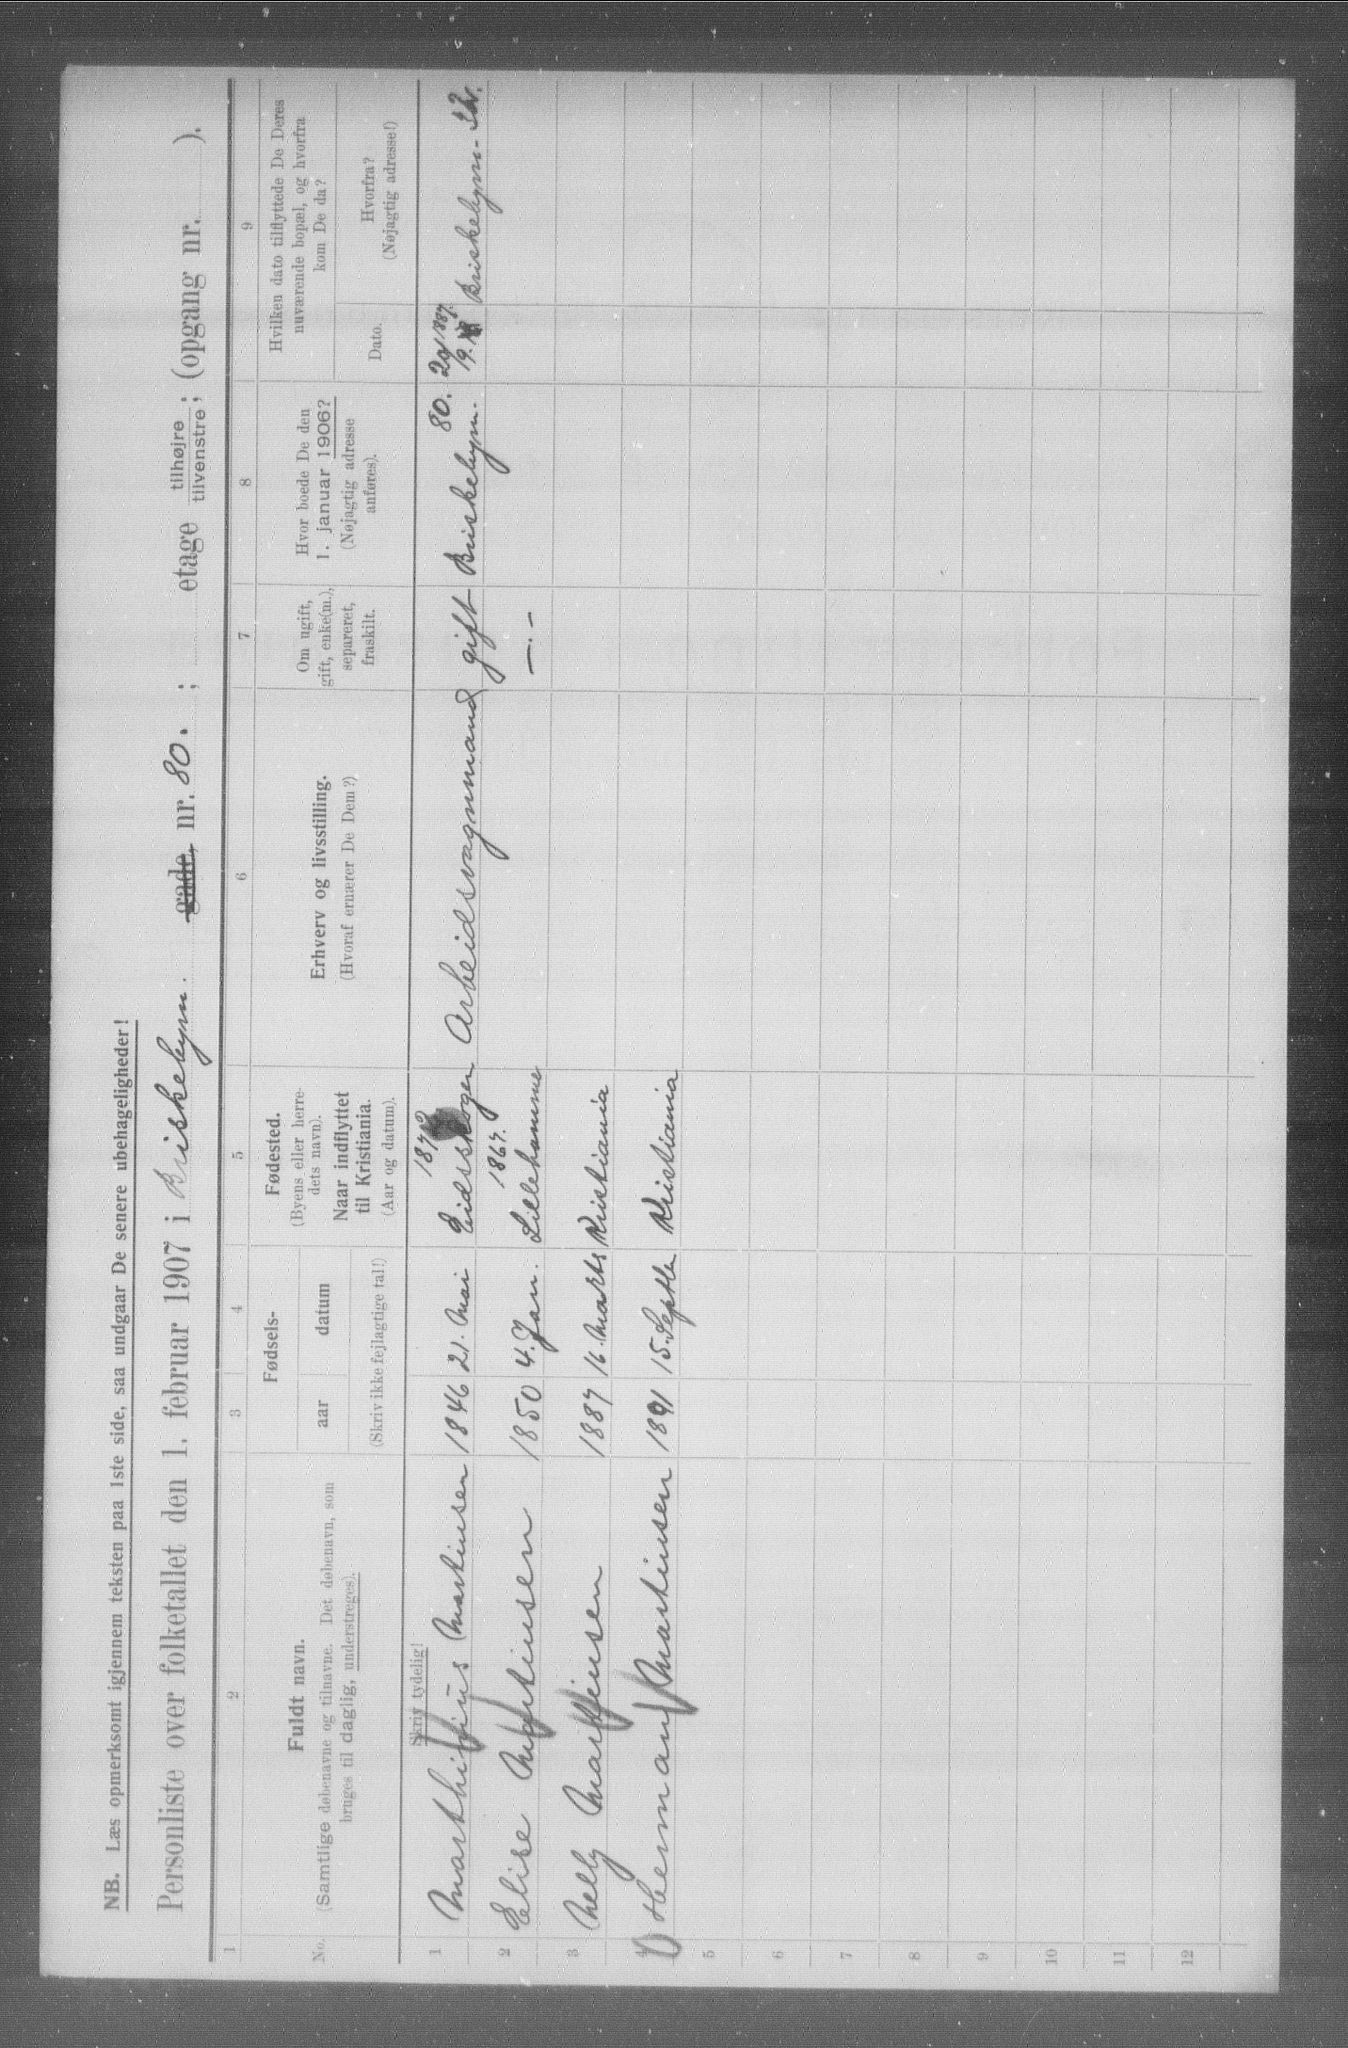 NB. Læs opmerksomt igjennem teksten paa 1ste side, saa undgaar De senere ubehageligheder!
Personliste over folketallet den 1. februar 1907 i Briskebyvn. gade, nr. 80. ; etage tilhøjre tilvenstre; (opgang nr. ).
1 2 3 4 5 6 7 8 9
No.
Fuldt navn.
(Samtlige døbenavne og tilnavne. Det døbenavn, som
bruges til daglig, understreges).
Fødsels-
aar datum
(Skriv ikke fejlagtige tal!)
Fødested.
(Byens eller herre-
dets navn).
Naar indflyttet
til Kristiania.
(Aar og datum).
Erhverv og livsstilling.
(Hvoraf ernærer De Dem?)
Om ugift,
gift, enke(m.),
separeret,
fraskilt.
Hvor boede De den
1. januar 1906?
(Nøjagtig adresse
anføres).
Hvilken dato tilflyttede De Deres
nuværende bopæl, og hvorfra
kom De da?
Dato.
Hvorfra?
(Nøjagtig adresse!)
Skriv tydelig!
80.
1 Marthinius Martinsen 1846 21. Mai Eidsskogen Arbeidsvognmand gift Briskebyvn. Briskebyvn.
1867.
2 Elise Martinsen 1850 4. Jan. Lillehammer —.–
3 Nelly Martinsen 1887 16. Marts Kristiania
4 Martinsen 1891 15. Septbr Kristiania
5
6
7
8
9
10
11
12